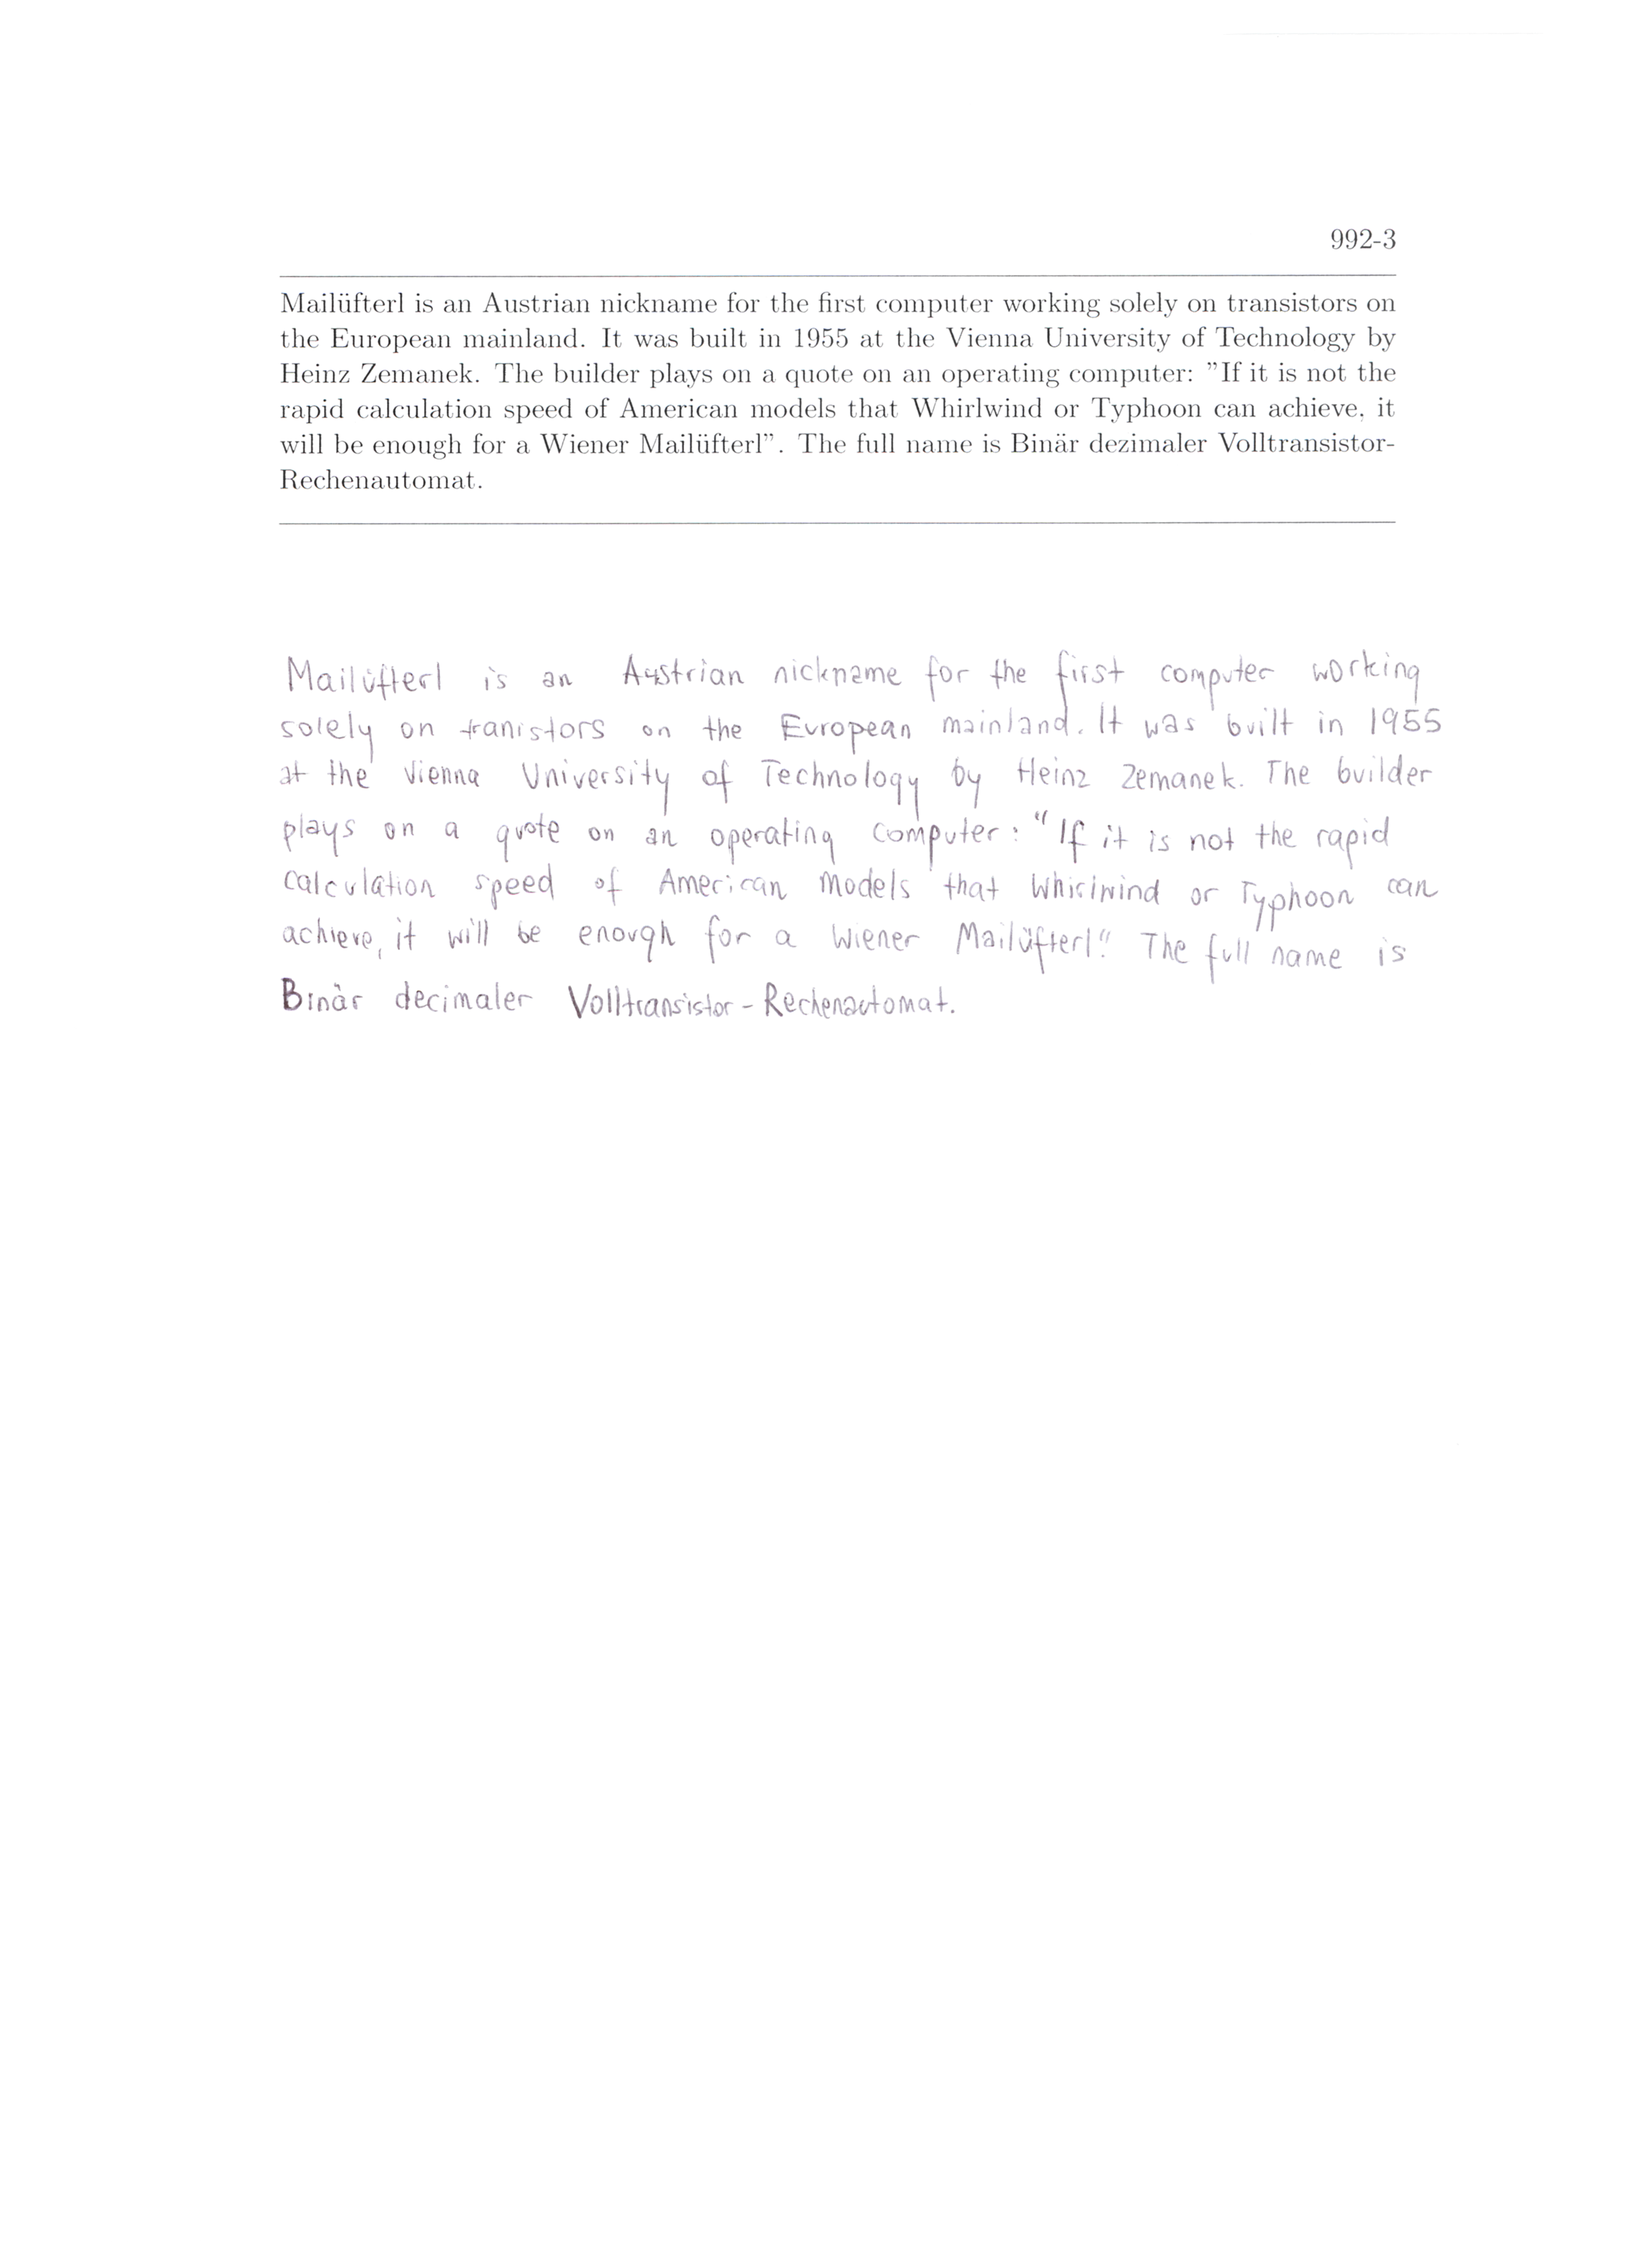 992-3
Mailüfterl is an Austrian nickname for the first computer working solely on transistors on
the European mainland. It was built in 1955 at the Vienna University of Technology by
Heinz Zemanek. The builder plays on a quote on an operating computer: ”If it is not the
rapid calculation speed of American models that Whirlwind or Typhoon can achieve, it
will be enough for a Wiener Mailüfterl”. The full name is Binär dezimaler Volltransistor-
Rechenautomat.
Mailüfterl is an Austrian nickname for the first computer working
solely on tranistors on the European mainland. It was built in 1955
at the Vienna University of Technology by Heinz Zemanek. The builder
plays on a quote on an operating computer: “If it is not the rapid
calculation speed of American models that Whirlwind or Typhoon can
achieve, it will be enough for a Wiener Mailüfterl“. The full name is
Binär decimaler Volltransistor-Rechenautomat.